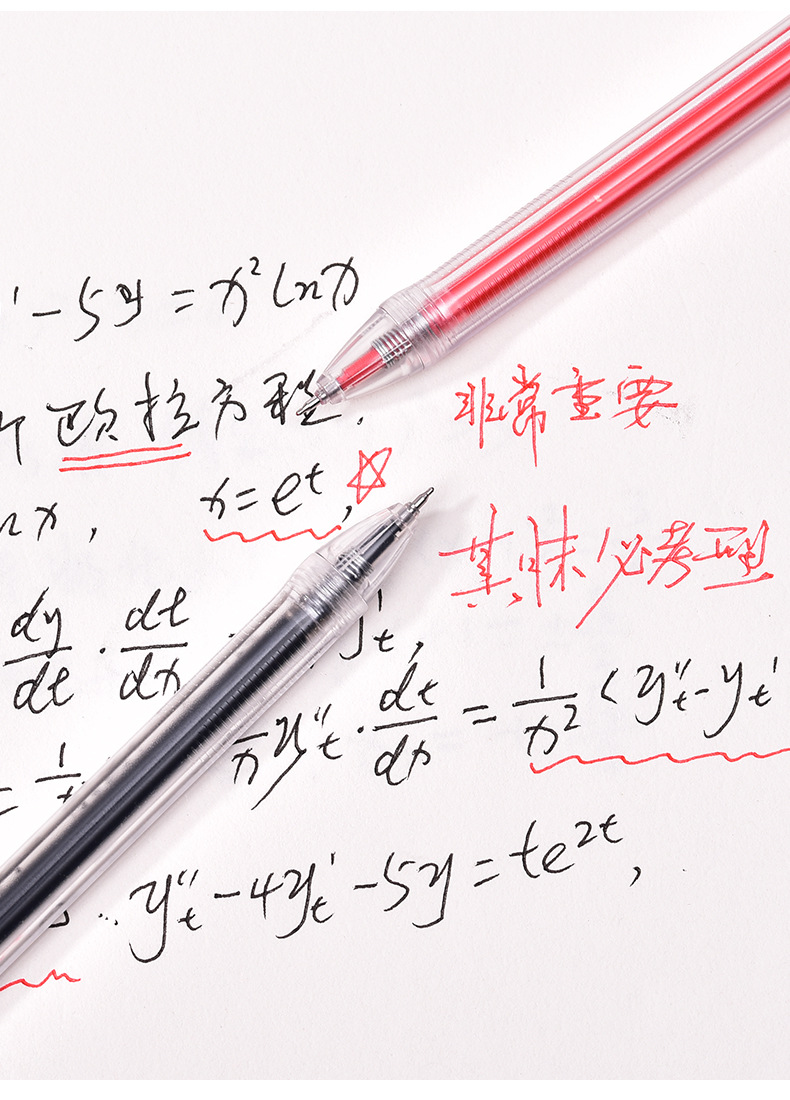 ' - 5y = x² ln x
欧拉方程. 非常重要
nx, x = eᵗ,
期末必考题型
dy/dt · dt/dx · y't,
= 1/x y''t · dt/dx = 1/x² (y''t - y't
y''t - 4y't - 5y = te²ᵗ,